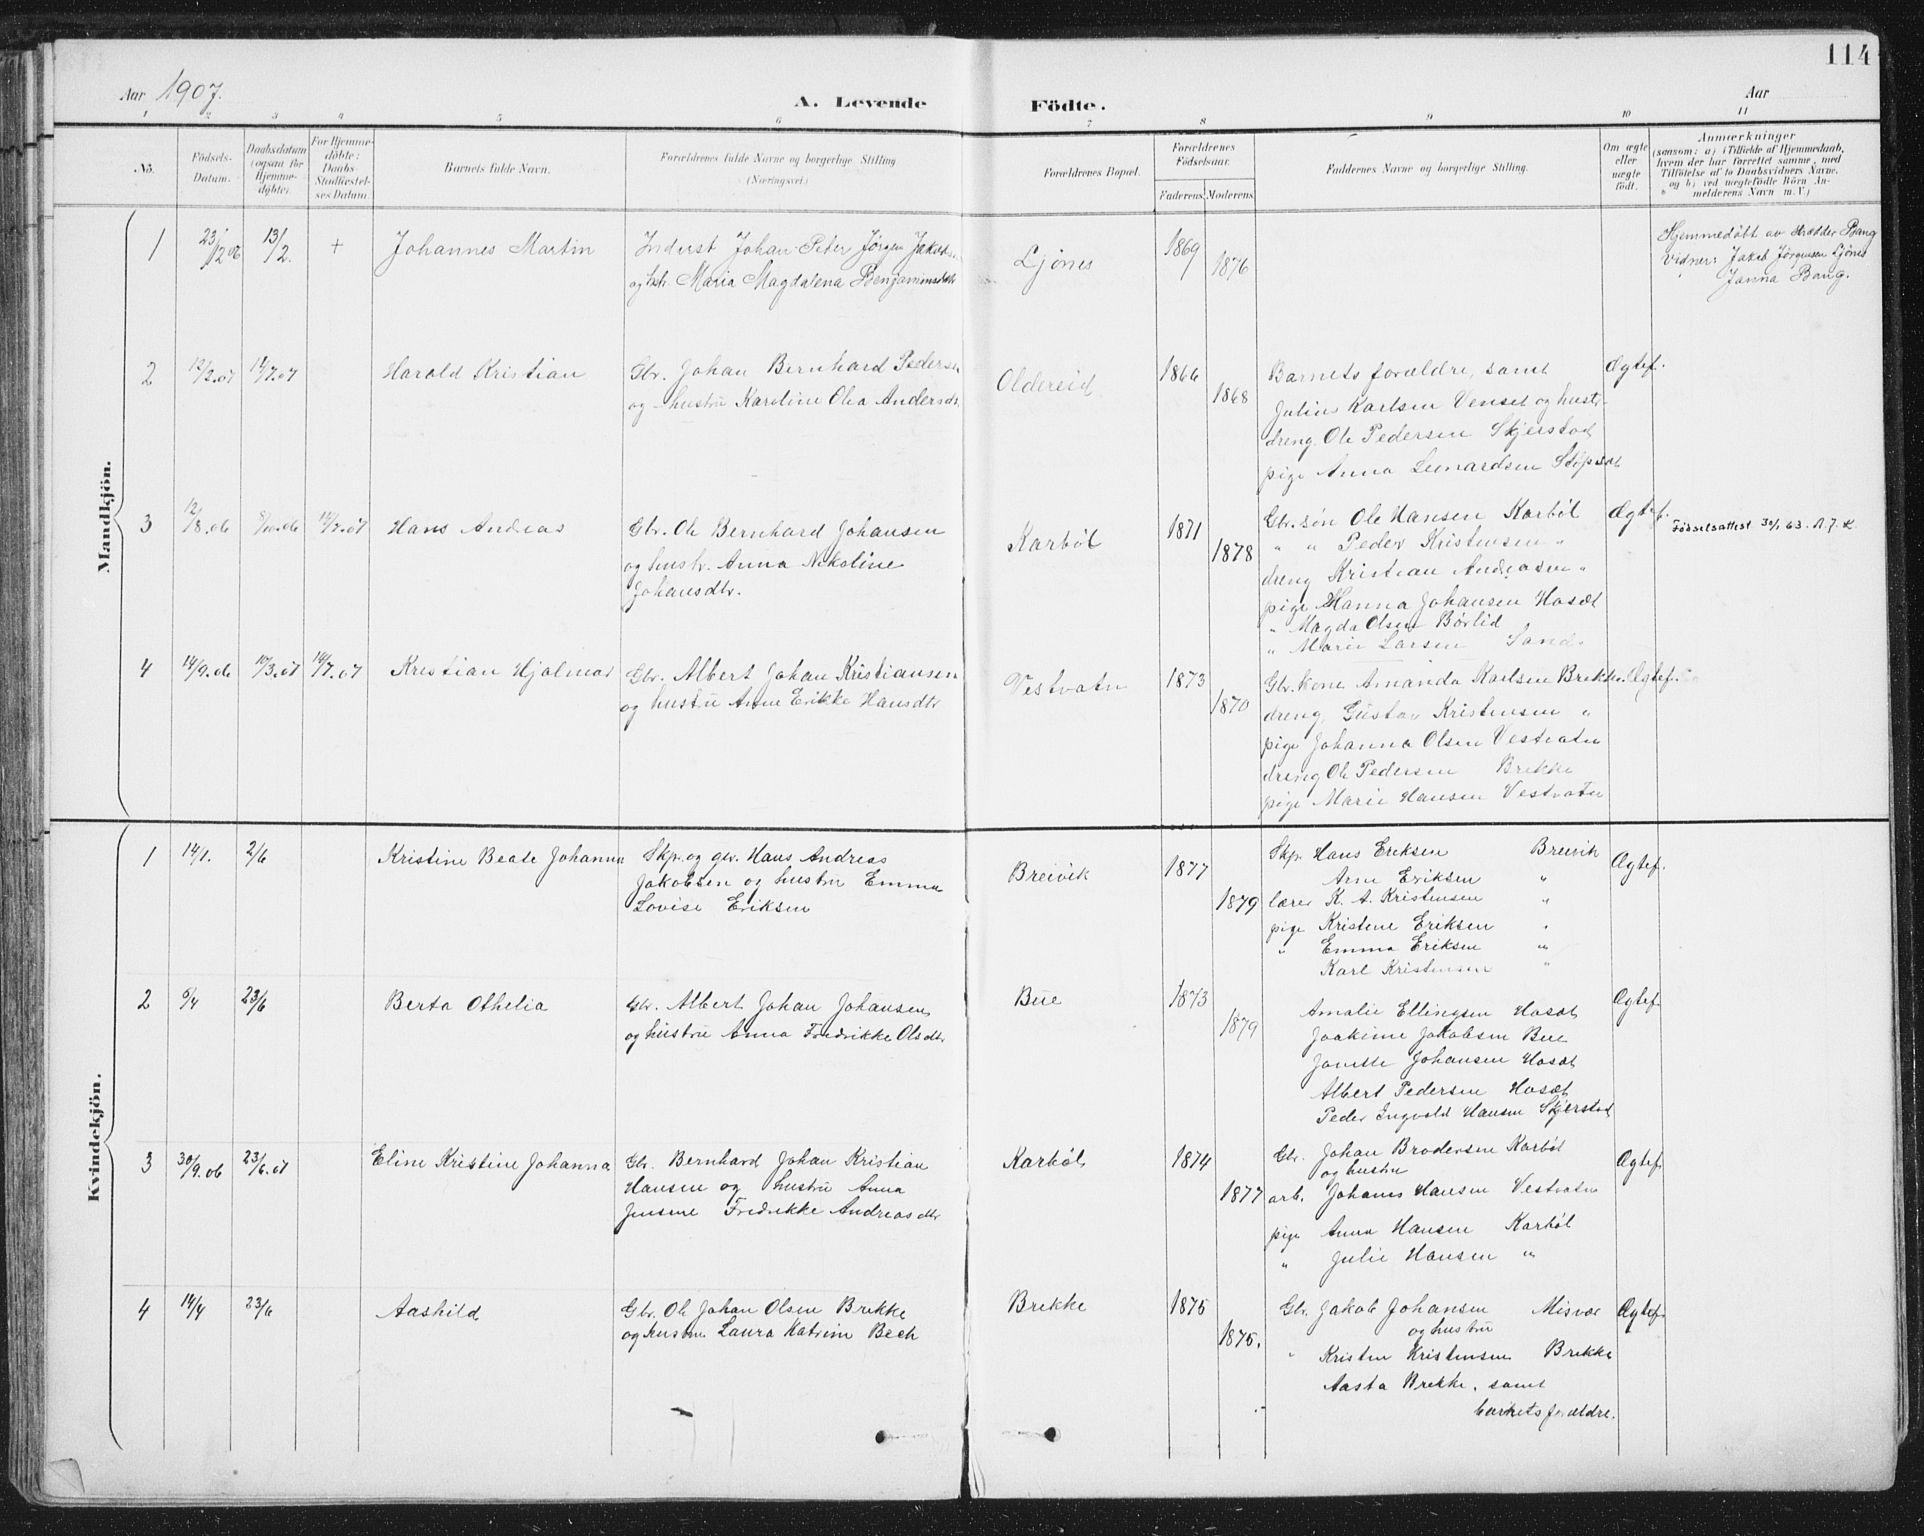 114
Aar 1907.
A. Levende Födte.
Aar
1 2 3 4 5 6 7 8 9 10 11
No.
Födsels-Datum.
Daabsdatum (ogsaa for Hjemme-døbte).
For Hjemme-døbte: Daabs-Stadfæstel-ses Datum.
Barnets fulde Navn.
Forældrenes fulde Navne og borgerlige Stilling (Næringsvei.)
Forældrenes Bopæl.
Forældrenes Fødselsaar.
Faderens. Moderens.
Faddernes Navne og borgerlige Stilling.
Om ægte eller uægte født.
Anmærkninger
(saasom: a) i Tilfælde af Hjemmedaab,
hvem der har forrettet samme, med
Tilföielse af to Daabsvidners Navne,
og b) ved uægtefödte Börn An-
melderens Navn m. V.)
Mandkjön.
1 23/12 06 13/2. + Johannes Martin
Inderst Johan Peter Jørgen Jakobs.
og hstr. Maria Magdalena Benjaminsdtr
Ljönes 1869 1876
Hjemmedøbt av Hredder Bang
Vidner: Jakob Jörgensen Ljönes
Janna Bang.
2 12/2.07 14/7.07 Harald Kristian
Gbr. Johan Bernhard Pedersen
og hustru Karoline Olea Andersdtr.
Oldereid 1866 1868
Barnets forældre, samt
Julius Karlsen Venset og hustr.
dreng Ole Pedersen Skjerstad
pige Anna Leonardsen Støpset
Ægtef.
3 12/8.06 8/10.06 14/7.07 Hans Andreas
Gbr. Ole Bernhard Johansen
og hustr. Anna Nikoline
Johansdtr.
Karbøl 1871 1878
Gbr. søn Ole Hansen Karbøl
" " Peder Kristensen "
dreng Kristian Andreasen "
pige Hanna Johansen Hosæt
" Magda Olsen Børlid
" Marie Larsen Sand.
Ægtef.
Fødselsattest 30/1 63. A.J.K.
4 14/9.06 10/3.07 14/7.07 Kristian Hjalmar
Gbr. Albert Johan Kristiansen
og hustru Anne Erikke Hansdtr
Vestvatn 1873 1870
Gbr. kone Amanda Karlsen Brekke.
dreng Gustav Kristensen "
pige Johanna Olsen Vestvatn
dreng Ole Pedersen Brekke
pige Marie Hansen Vestvatn
Ægtef.
Kvindekjön.
1 14/1. 2/6 Kristine Beate Johanna
Skp. og gbr. Hans Andreas
Jakobsen og hustru Emma
Lovise Eriksen
Breivik 1877 1879
Skp. Hans Eriksen Breivik
Arne Eriksen "
lærer K. A. Kristensen "
pige Kristine Eriksen "
" Emma Eriksen "
Karl Kristensen "
Ægtef.
2 5/4 23/6 Berta Othelia
Gbr. Albert Johan Johansen
og hustru Anna Fredrikke Olsdtr
Bue 1873 1879
Amalie Ellingsen Hosæt
Joakime Jakobsen Bue
Janette Johansen Hosæt
Albert Pedersen Hosæt
Peder Ingvald Hansen Skjerstad
Ægtef.
3 30/9.06 23/6.07 Eline Kristine Johanna
Gbr. Bernhard Johan Kristian
Hansen og hustru Anna
Jensine Fredrikke Andreasdtr
Karbøl 1874 1877
Gbr. Johan Brodersen Karbøl
og hustru
arb. Johanes Hansen Vestvatn
pige Anna Hansen Karbøl
" Julie Hansen "
Ægtef.
4 14/4 23/6 Aashild
Gbr. Ole Johan Olsen Brekke
og hustru Laura Katrine Bech
Brekke 1875 1875.
Gbr. Jakob Johansen Misvær
og hustru
" Kristen Kristensen Brekke
Aasta Brekke, samt
barnets forældre.
Ægtef.